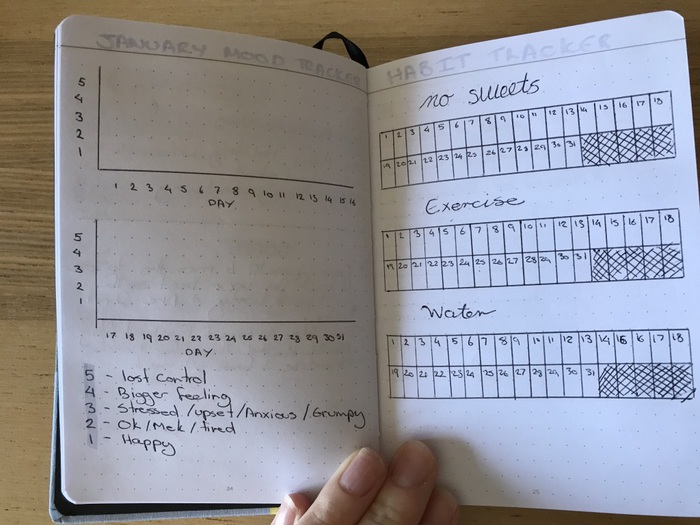 JANUARY MOOD TRACKER
5
4
3
2
1
1 2 3 4 5 6 7 8 9 10 11 12 13 14 15 16
DAY
5
4
3
2
1
17 18 19 20 21 22 23 24 25 26 27 28 29 30 31
DAY
5 - lost control
4 - Bigger feeling
3 - Stressed/upset/Anxious/Grumpy
2 - Ok/Meh/tired
1 - Happy
24
HABIT TRACKER
no sweets
1 2 3 4 5 6 7 8 9 10 11 12 13 14 15 16 17 18
19 20 21 22 23 24 25 26 27 28 29 30 31
Exercise
1 2 3 4 5 6 7 8 9 10 11 12 13 14 15 16 17 18
19 20 21 22 23 24 25 26 27 28 29 30 31
Water
1 2 3 4 5 6 7 8 9 10 11 12 13 14 15 16 17 18
19 20 21 22 23 24 25 26 27 28 29 30 31
25